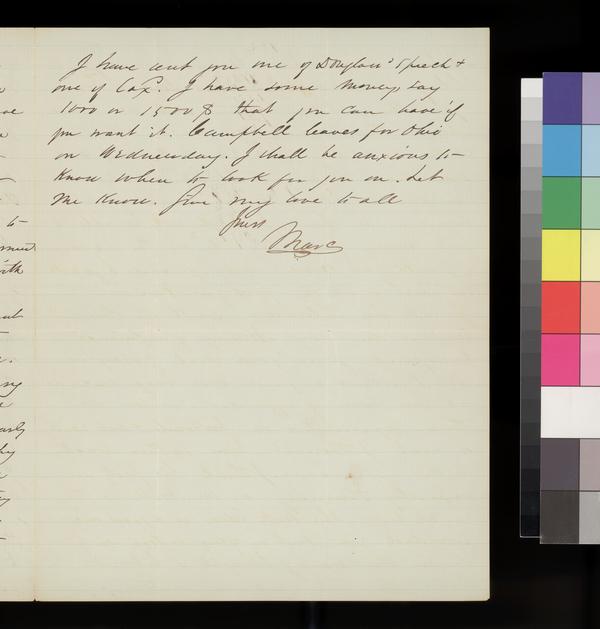 I have sent you one of Douglass' Speech &
one of Cox. I have some money, say
1000 or 1500 $ that you can have if
you want it. Campbell leaves for Ohio
on Wednesday. I shall be anxious to
Know when to look for you on. Let
me Know. Give my love to all
Yours
Marc